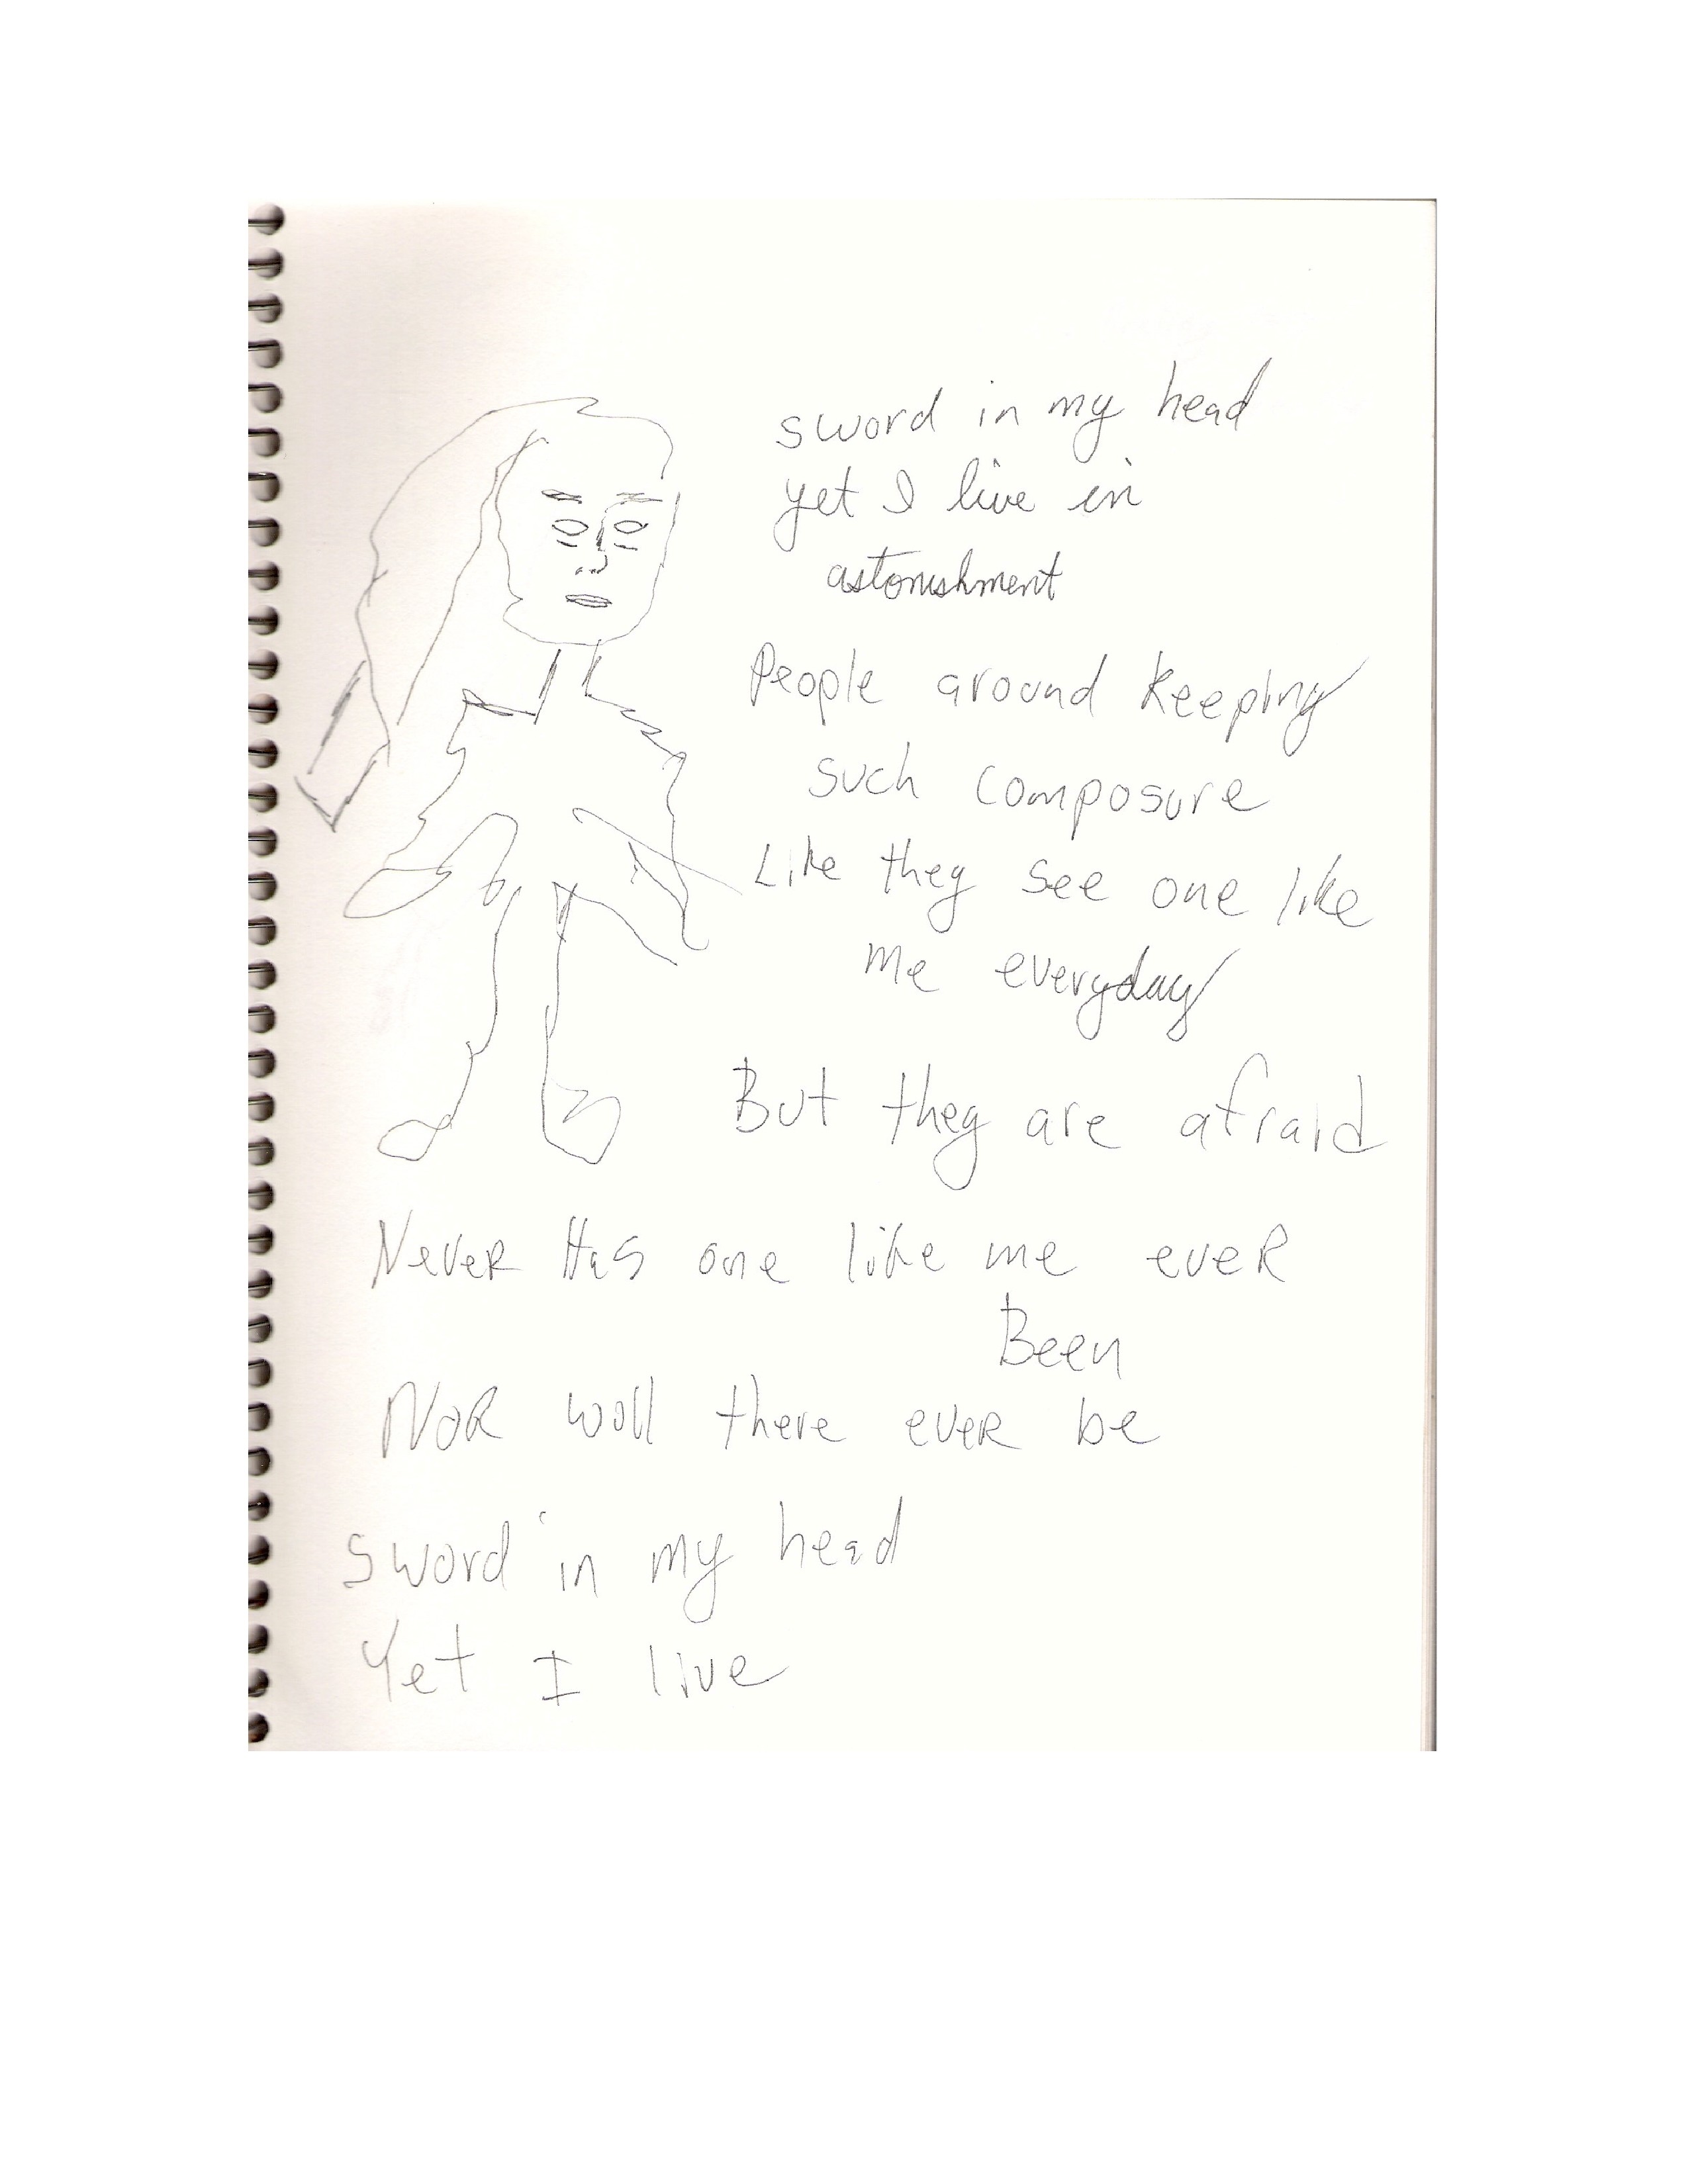 sword in my head
yet I live in
astonishment
People around keeping
such composure
Like they see one like
me everyday
But they are afraid
NeveR Has one like me eveR
Been
NoR will there eveR be
sword in my head
Yet I live